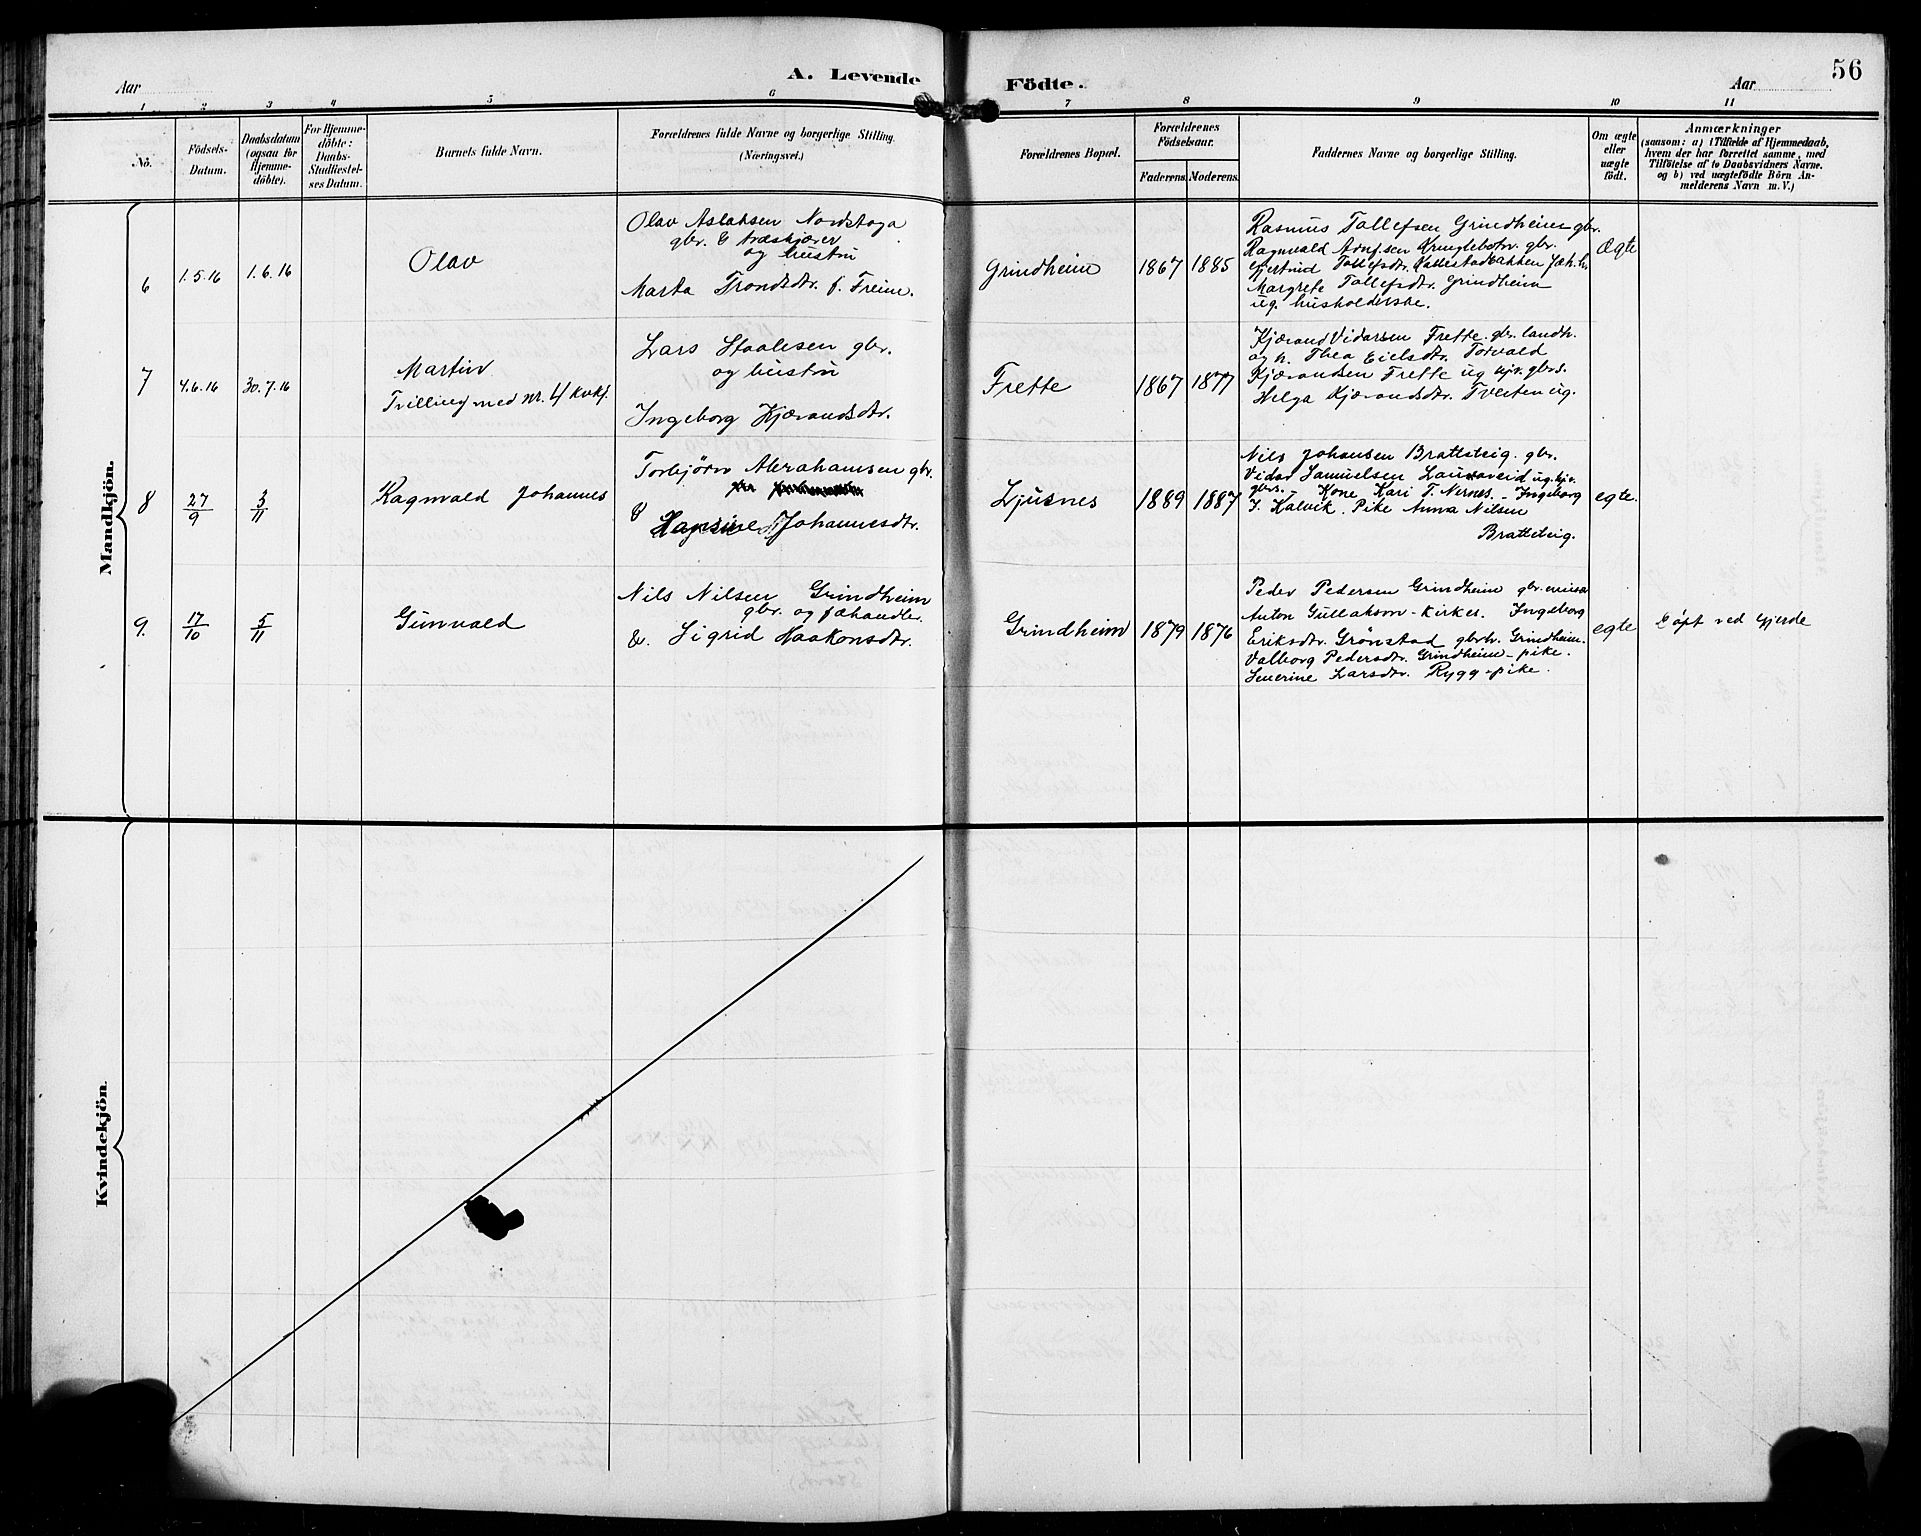 56
Aar
A. Levende
Födte.
Aar
1 2 3 4 5 6 7 8 9 10 11
No.
Födsels-
Datum.
Daabsdatum
(ogsaa for
Hjemme-
döbte).
For Hjemme-
döbte:
Daabs-
Stadfæstel-
ses Datum.
Barnets fulde Navn.
Forældrenes fulde Navne og borgerlige Stilling.
(Næringsvei.)
Forældrenes Bopæl.
Forældrenes
Födselsaar.
Faderens. Moderens.
Faddernes Navne og borgerlige Stilling.
Om ægte
eller
uægte
födt.
Anmærkninger
(saasom: a) i Tilfælde af Hjemmedaab,
hvem der har forrettet samme, med
Tilföielse af to Daabsvidners Navne.
og b) ved uægtefödte Börn An-
melderens Navn m. V.)
Mandkjön.
6
1.5.16
1.6.16
Olav
Olav Aslaksen Nordstoga
gbr. & træskjærer
og hustru
Marta Trondsdtr. f. Freim.
Grindheim
1867
1885
Rasmus Tollefsen Grindheim gbr.
Ragnvald Arnfsen Kringlebotn. gbr.
Gjertrud Tollefsdtr. Kallestadbakken
Margrete Tollefsdtr. Grindheim
ug. husholderske.
Ægte
7
4.6.16
30.7.16
Martin
Tvilling med nr. 4 kvkj.
Lars Staalesen gbr.
og hustru
Ingeborg Kjærandsdtr.
Frette
1867
1877
Kjærand Vidarsen Frette. gbr. landh.
og h. Thea Eielsdtr. Torvald
Kjærandsen Frette ug. hjv. gbrs.
Helga Kjærandsdtr. Tveiten ug.
8
27/9
3/11
Ragnvald Johannes
Torbjørn Abrahamsen gbr.
& Hansine Johannesdtr.
Ljusnes
1889
1887
Nils Johansen Bratteteig. gbr.
Vidar Samuelsen ug. hjv.
gbrs. - Kone Kari T. Nernes. - Ingeborg
J. Kalvik. Pike Anna Nilsen
Bratteteig.
egte.
9.
17/10
5/11
Gunvald
Nils Nilsen Grindheim
gbr. og fæhandler
&. Sigrid Haakonsdtr.
Grindheim
1879
1876
Peder Pedersen Grindheim gbr.
Anton Gullakson - Kirkes. Ingeborg
Eriksdtr. Grønstad gbrh. Grindheim.
Valborg Pedersdtr. Grindheim - pike.
Severine Larsdtr. Rygg - pike.
egte
Døpt ved Gjerde
Kvindekjön.